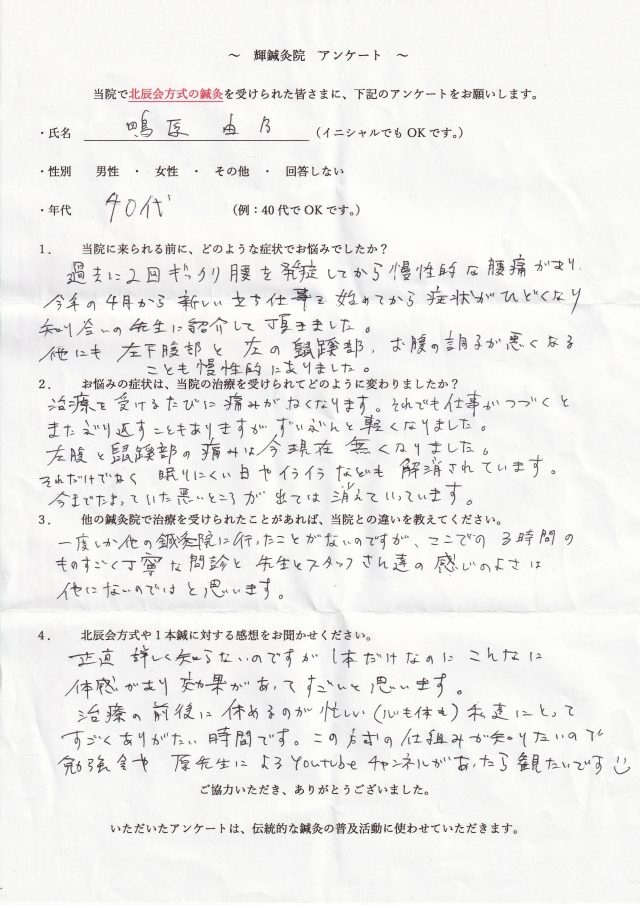 ～ 輝鍼灸院 アンケート ～
当院で北辰会方式の鍼灸を受けられた皆さまに、下記のアンケートをお願いします。
・氏名 鴨原 由乃 （イニシャルでもOKです。）
・性別 男性 ・ 女性 ・ その他 ・ 回答しない
・年代 40代 （例：40代でOKです。）
1. 当院に来られる前に、どのような症状でお悩みでしたか？
過去に2回ギックリ腰を発症してから慢性的な腰痛があり、
今年の4月から新しい立ち仕事を始めてから症状がひどくなり
知り合いの先生に紹介して頂きました。
他にも左下腹部と左の鼠蹊部、お腹の調子が悪くなる
ことも慢性的にありました。
2. お悩みの症状は、当院の治療を受けられてどのように変わりましたか？
治療を受けるたびに痛みがなくなります。それでも仕事がつづくと
またぶり返すこともありますがずいぶんと軽くなりました。
左腹と鼠蹊部の痛みは今現在無くなりました。
それだけでなく眠りにくい日やイライラなども解消されています。
今までたまっていた悪いところが出ては消えていっています。
3. 他の鍼灸院で治療を受けられたことがあれば、当院との違いを教えてください。
一度しか他の鍼灸院に行ったことがないのですが、ここでの3時間の
ものすごく丁寧な問診と先生とスタッフさん達の感じのよさは
他にないのではと思います。
4. 北辰会方式や1本鍼に対する感想をお聞かせください。
正直詳しく知らないのですが1本だけなのにこんなに
体感があり効果があってすごいと思います。
治療の前後に休めるのが忙しい(心も体も)私達にとって
すごくありがたい時間です。この方式の仕組みが知りたいので
勉強会や原先生によるYoutubeチャンネルがあったら観たいです
ご協力いただき、ありがとうございました。
いただいたアンケートは、伝統的な鍼灸の普及活動に使わせていただきます。